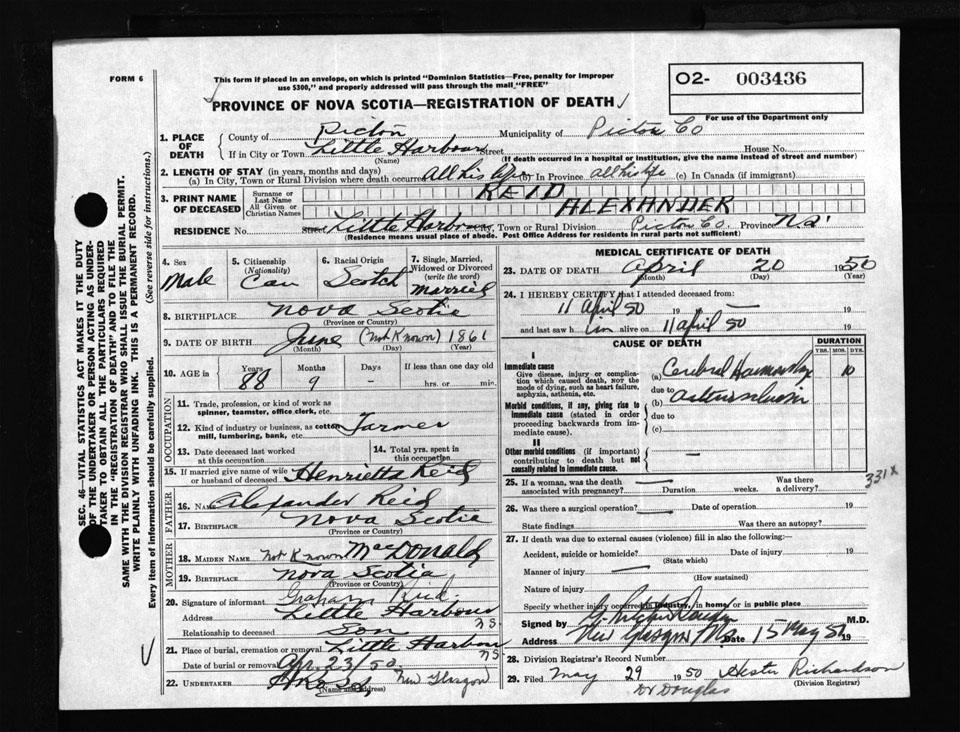 FORM 6
This form if placed in an envelope, on which is printed "Dominion Statistics—Free, penalty for improper
use $300," and properly addressed will pass through the mail "FREE"
PROVINCE OF NOVA SCOTIA—REGISTRATION OF DEATH
O2- 003436
For use of the Department only
1. PLACE OF DEATH
County of Pictou Municipality of Pictou Co
If in City or Town Little Harbour Street House No.
(Name) (If death occurred in a hospital or institution, give the name instead of street and number)
2. LENGTH OF STAY (in years, months and days)
(a) In City, Town or Rural Division where death occurred All his life (b) In Province all his life (c) In Canada (if immigrant)
3. PRINT NAME OF DECEASED
Surname or Last Name REID
All Given or Christian Names ALEXANDER
RESIDENCE No. Street Little Harbour City, Town or Rural Division Pictou Co. Province N.S.
(Residence means usual place of abode. Post Office Address for residents in rural parts not sufficient)
4. Sex Male
5. Citizenship (Nationality) Can
6. Racial Origin Scotch
7. Single, Married, Widowed or Divorced (write the word) Married
8. BIRTHPLACE Nova Scotia
(Province or Country)
9. DATE OF BIRTH June (Not Known) 1861
(Month) (Day) (Year)
10. AGE in Years 88 Months 9 Days - If less than one day
hrs. or min.
OCCUPATION
11. Trade, profession, or kind of work as
spinner, teamster, office clerk, etc.
12. Kind of industry or business, as cotton Farmer
mill, lumbering, bank, etc.
13. Date deceased last worked
at this occupation
14. Total yrs. spent in
this occupation
15. If married give name of wife
or husband of deceased Henrietta Reid
FATHER
16. Name Alexander Reid
17. BIRTHPLACE Nova Scotia
MOTHER
18. MAIDEN NAME Not Known MacDonald
19. BIRTHPLACE Nova Scotia
(Province or Country)
20. Signature of informant Graham Reid
Address Little Harbour N S
Relationship to deceased Son
21. Place of burial, cremation or removal Little Harbour N S.
Date of burial or removal Apr. 23/50.
22. UNDERTAKER New Glasgow
(Name and address)
MEDICAL CERTIFICATE OF DEATH
23. DATE OF DEATH April 20 1950
(Month) (Day)
24. I HEREBY CERTIFY that I attended deceased from:
11 April 50 19 to — 19
and last saw him alive on 11 april 50 19
CAUSE OF DEATH
DURATION
YRS. MOS. DYS.
I
Immediate cause
Give disease, injury or complication
which caused death, NOT the
mode of dying, such as heart failure,
asphyxia, asthenia, etc.
(a) Cerebral Haemorrhage 10
due to
Morbid conditions, if any, giving rise to
immediate cause (stated in order
proceeding backwards from immediate
cause).
(b)
due to
(c)
II
Other morbid conditions (if important)
contributing to death but not
causally related to immediate cause.
—
331x
25. If a woman, was the death
associated with pregnancy? — Duration weeks. Was there
a delivery?
26. Was there a surgical operation? — Date of operation 19
State findings Was there an autopsy?
27. If death was due to external causes (violence) fill in also the following:—
Accident, suicide or homicide? — Date of injury 19
(State which)
Manner of injury —
(How sustained)
Nature of injury
Specify whether injury occurred in industry, in home, or in public place
Signed by M.D.
Address New Glasgow N.S. Date 15 May 50 19
28. Division Registrar's Record Number
29. Filed May 29 1950 Hester Richardson
(Division Registrar)
Dr Douglas
SEC. 46—VITAL STATISTICS ACT MAKES IT THE DUTY
OF THE UNDERTAKER OR PERSON ACTING AS UNDERTAKER
TO OBTAIN ALL THE PARTICULARS REQUIRED
IN THE "REGISTRATION OF DEATH" AND TO FILE THE
SAME WITH THE DIVISION REGISTRAR WHO SHALL ISSUE THE BURIAL PERMIT.
WRITE PLAINLY WITH UNFADING INK. THIS IS A PERMANENT RECORD.
Every item of information should be carefully supplied. (See reverse side for instructions.)